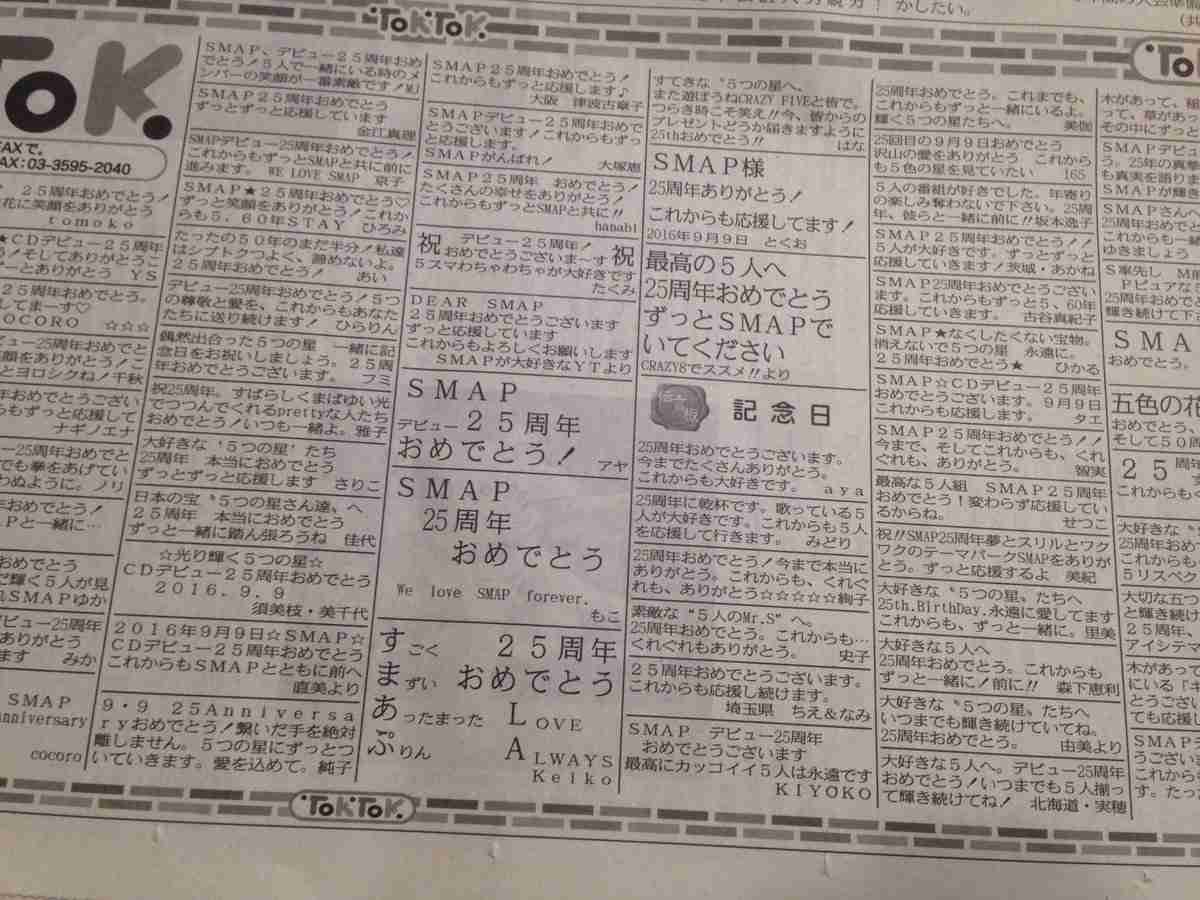 TOKTOK.
かしたい。
TOK.
FAXで。
AX:03-3595-2040
25周年おめでとう!
花に笑顔をありがとう
tomoko
★CDデビュー25周年
!そしてありがとうご
ーとありがとう YS
25周年おめでとう。
してま―す♡
OCORO ☆☆☆
ビュー25周年おめでと
笑顔をありがとう/こ
とヨロシクね!千秋
おめでとうござい
らもずっと応援します
ナギノエナ
25周年おめでと
でも拳をあげてい
わぬように。ノリ
おめでとう!
Pと一緒に…
おめでとう
輝く5人が見
SMAPゆか
ー25周年
りがとう
ます みか
SMAP
nniversary
cocoro
SMAP、デビュー25周年おめ
でとう!5人で一緒にいる時のメ
ンバーの笑顔が一番素敵です!MJ
SMAP25周年おめでとう
ずっとずっと応援しています
金江真理
SMAPデビュー25周年おめでとう!
これからもずっとSMAPと共に前に
進みます。WE LOVE SMAP 京子
SMAP★25周年おめでとう♡
ずっと笑顔をありがとう!これか
らも5、60年STAY ひろみ
たったの50年のまだ半分!私達
はシナトクつよく、諦めないよ。
25周年おめでとう! あい
デビュー25周年おめでとう!5つ
の尊敬と愛を、これからもあなた
たちに送り続けます! ひらりん
偶然出合った5つの星 一緒に記
念日をお祝いしましょう。25周
年おめでとうございます。 フミ
祝25周年。すばらしくまばゆい光
でつつんでくれるprettyな人たち
おめでとう!いつも一緒よ。雅子
大好きな〝5つの星〟たち
25周年 本当におめでとう
ずっとずっと応援します さりこ
日本の宝〝5つの星さん達〟へ
25周年 本当におめでとう
ずっと一緒に踏ん張ろうね 佳代
☆光り輝く5つの星☆
CDデビュー25周年おめでとう
2016.9.9
須美枝・美千代
2016年9月9日☆SMAP☆
CDデビュー25周年おめでとう
これからもSMAPとともに前へ
直美より
9・9 25Anniversa
ryおめでとう!繋いだ手を絶対
離しません。5つの星にずっとつ
いていきます。愛を込めて。純子
SMAP25周年おめでとう!
これからもずっと応援します♪
大阪 津波古章子
SMAP25周年おめで
とうございます!これからもずっ
と応援します。
SMAPがんばれ! 大塚恵
SMAP25周年 おめでとう!
たくさんの幸せをありがとう!
これからもずっとSMAPと共に!!
hanabi
祝 デビュー25周年! 祝
おめでとうございま~す
5スマわちゃわちゃが大好きです
たくみ
DEAR SMAP
25周年おめでとうございます
ずっと応援しています
これからもよろしくお願いします
SMAPが大好きなYTより
SMAP
デビュー25周年
おめでとう! アヤ
SMAP
25周年
おめでとう
We love SMAP forever.
もこ
すごく 25周年
まずい おめでとう
あったまった LOVE
ぷりん ALWAYS
Keiko
すてきな〝5つの星へ〟
また遊ぼうねCRAZY FIVEと皆で。
つらき時こそ笑え!!今、皆からの
プレゼントどうか届きますように
25thおめでとう!! はな
SMAP様
25周年ありがとう!
これからも応援してます!
2016年9月9日 とくお
最高の5人へ
25周年おめでとう
ずっとSMAPで
いてください
CRAZY8でススメ!!より
伝言板 記念日
25周年おめでとうございます。
今までたくさんありがとう。
これからも大好きです。 aya
25周年に乾杯です。歌っている5
人が大好きです。これからも5人
を応援して行きます。 みどり
25周年おめでとう!今まで本当に
ありがとう。これからも、くれぐ
れも、ありがとう☆☆☆☆☆絢子
素敵な“5人のMr.S”へ。
25周年おめでとう。これからも…
くれぐれもありがとう。 史子
25周年おめでとうございます。
これからも応援し続けます。
埼玉県 ちえ&なみ
SMAP デビュー25周年
おめでとうございます
最高にカッコイイ5人は永遠です
KIYOKO
25周年おめでとう。これまでも、
これからもずっと一緒にいるよ。
輝く5つの星たちへ。 美伽
25回目の9月9日おめでとう
沢山の愛をありがとう これから
も5色の星を見ていたい 165
5人の番組が好きでした。年寄り
の楽しみ奪わないで下さい。25周
年、彼らと一緒に前に!!坂本逸子
SMAP25周年おめでとう!!
5人が大好きです。ずっとずっと
応援していきます!茨城・あかね
SMAP25周年おめでとうござい
ます。これからもずっと5、60年
応援していきます。 古谷真紀子
SMAP★なくしたくない宝物。
消えないで5つの星 永遠に。
25周年おめでとう★ ひかる
SMAP☆CDデビュー25周年
おめでとうございます。9月9日
これからも応援します。 タエ
SMAP25周年おめでとう!!
今まで、そしてこれからも、くれ
ぐれも、ありがとう。 智実
最高な5人組 SMAP25周年
おめでとう!変わらず応援してい
るからね。 せつこ
祝!!SMAP25周年夢とスリルとワク
ワクのテーマパークSMAPをありが
とう。ずっと応援するよ 美紀
大好きな〝5つの星〟たちへ
25th.BirthDay.永遠に愛してます
これからも、ずっと一緒に。里美
大好きな5人へ
25周年おめでとう。これからも
ずっと一緒に!前に!! 森下恵利
大好きな〝5つの星〟たちへ
いつまでも輝き続けていてね。
25周年おめでとう。 由美より
大好きな5人へ。デビュー25周年
おめでとう!いつまでも5人揃っ
て輝き続けてね! 北海道・実穂
To
木があって、
って、草があっ
その中にずっと
SMAPデビュ
う。25年の真実
も真実を語りま
SMAPが輝き
SMAPさんへ
25周年おめでと
これからも一
ゆきましょう
S率先し M
Pピュアな
25周年おめで
輝き続けて下
SMA
おめでとう。
五色の花
おめでとう、
そして50周
25周
これからも
大好きな
25周年お
これからも
5リスペク
大切な五つ
と輝き続け
25周年、
アイシテマ
木があって
にいる「キ
とうござい
ても応援し
SMAP
うござい
これから
す。たった
TOKTOK.